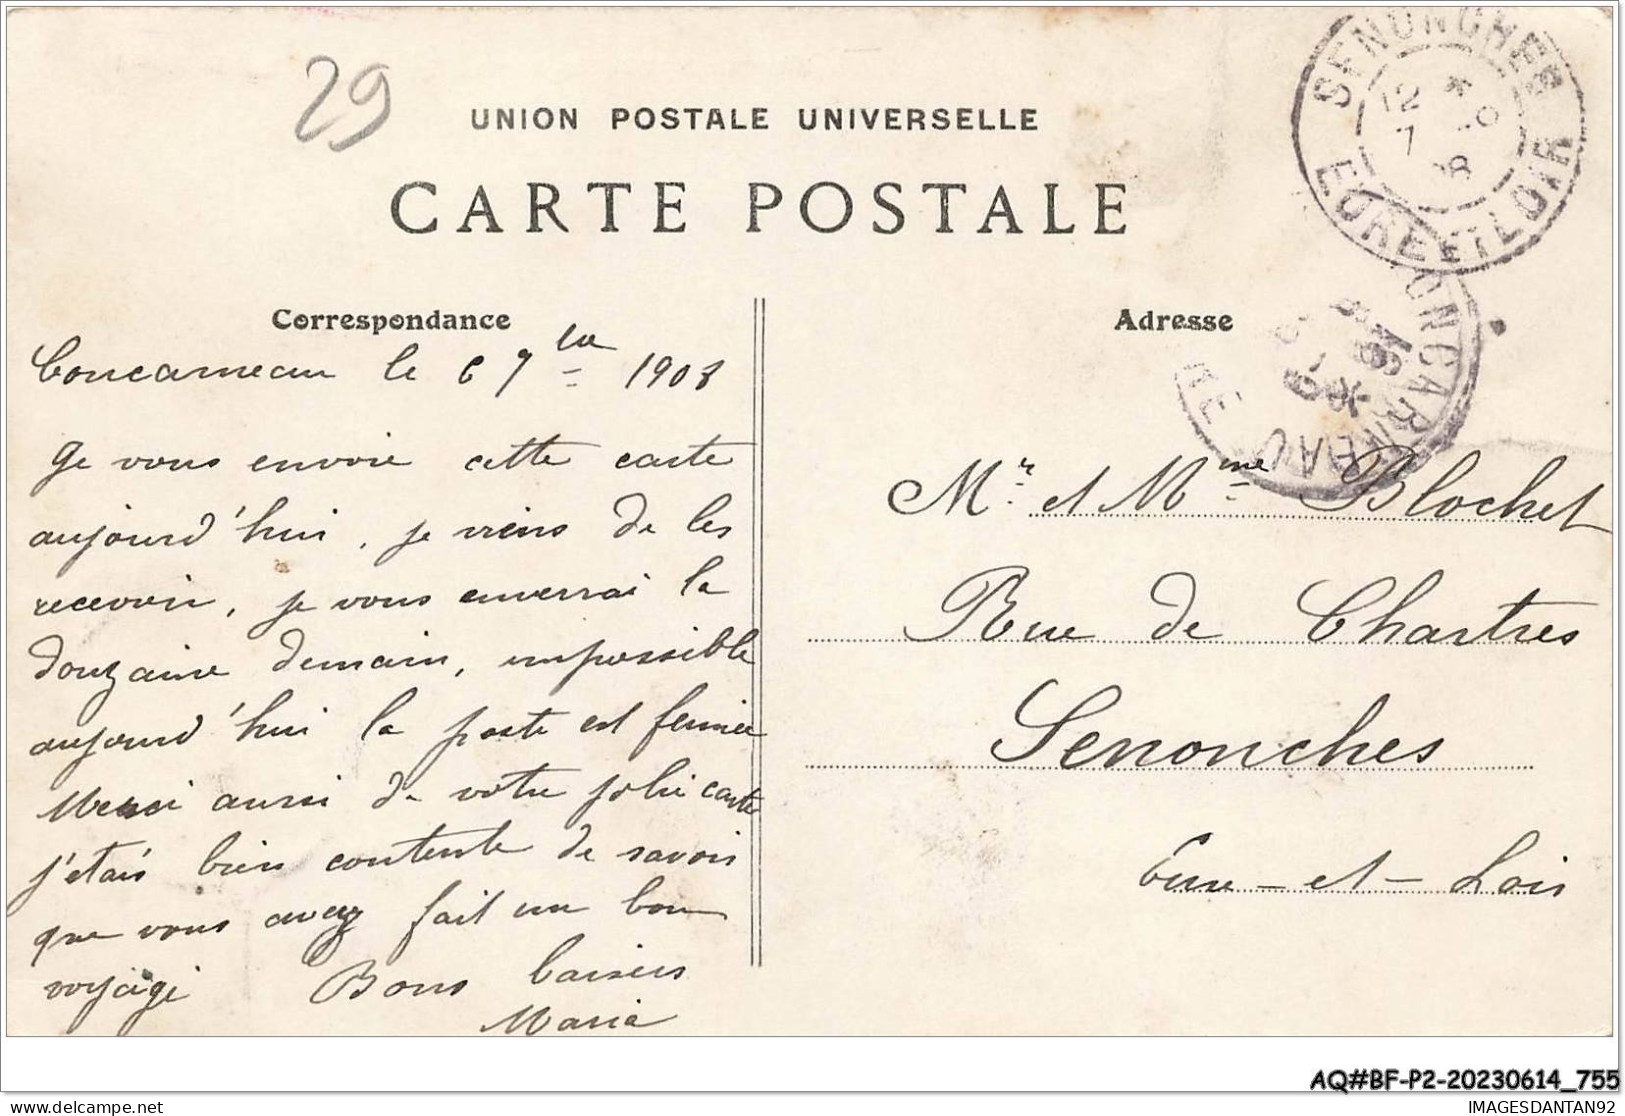 29
UNION POSTALE UNIVERSELLE
CARTE POSTALE
SENONCHES
12 * 
7 08
EURE ET LOIR
CONCARNEAU
Correspondance
Adresse
Concarneau le 6 7bre 1908
Je vous envoie cette carte
aujourd'hui, je viens de les
recevoir, je vous enverrai la
douzaine demain, impossible
aujourd'hui la poste est fermée
Merci aussi de votre jolie carte
j'étais bien contente de savoir
que vous avez fait un bon
voyage Bons baisers
Maria
Mr et Mme Blochet
Rue de Chartres
Senonches
Eure-et-Loir
AQ#BF-P2-20230614_755
delcampe.net
IMAGESDANTAN92